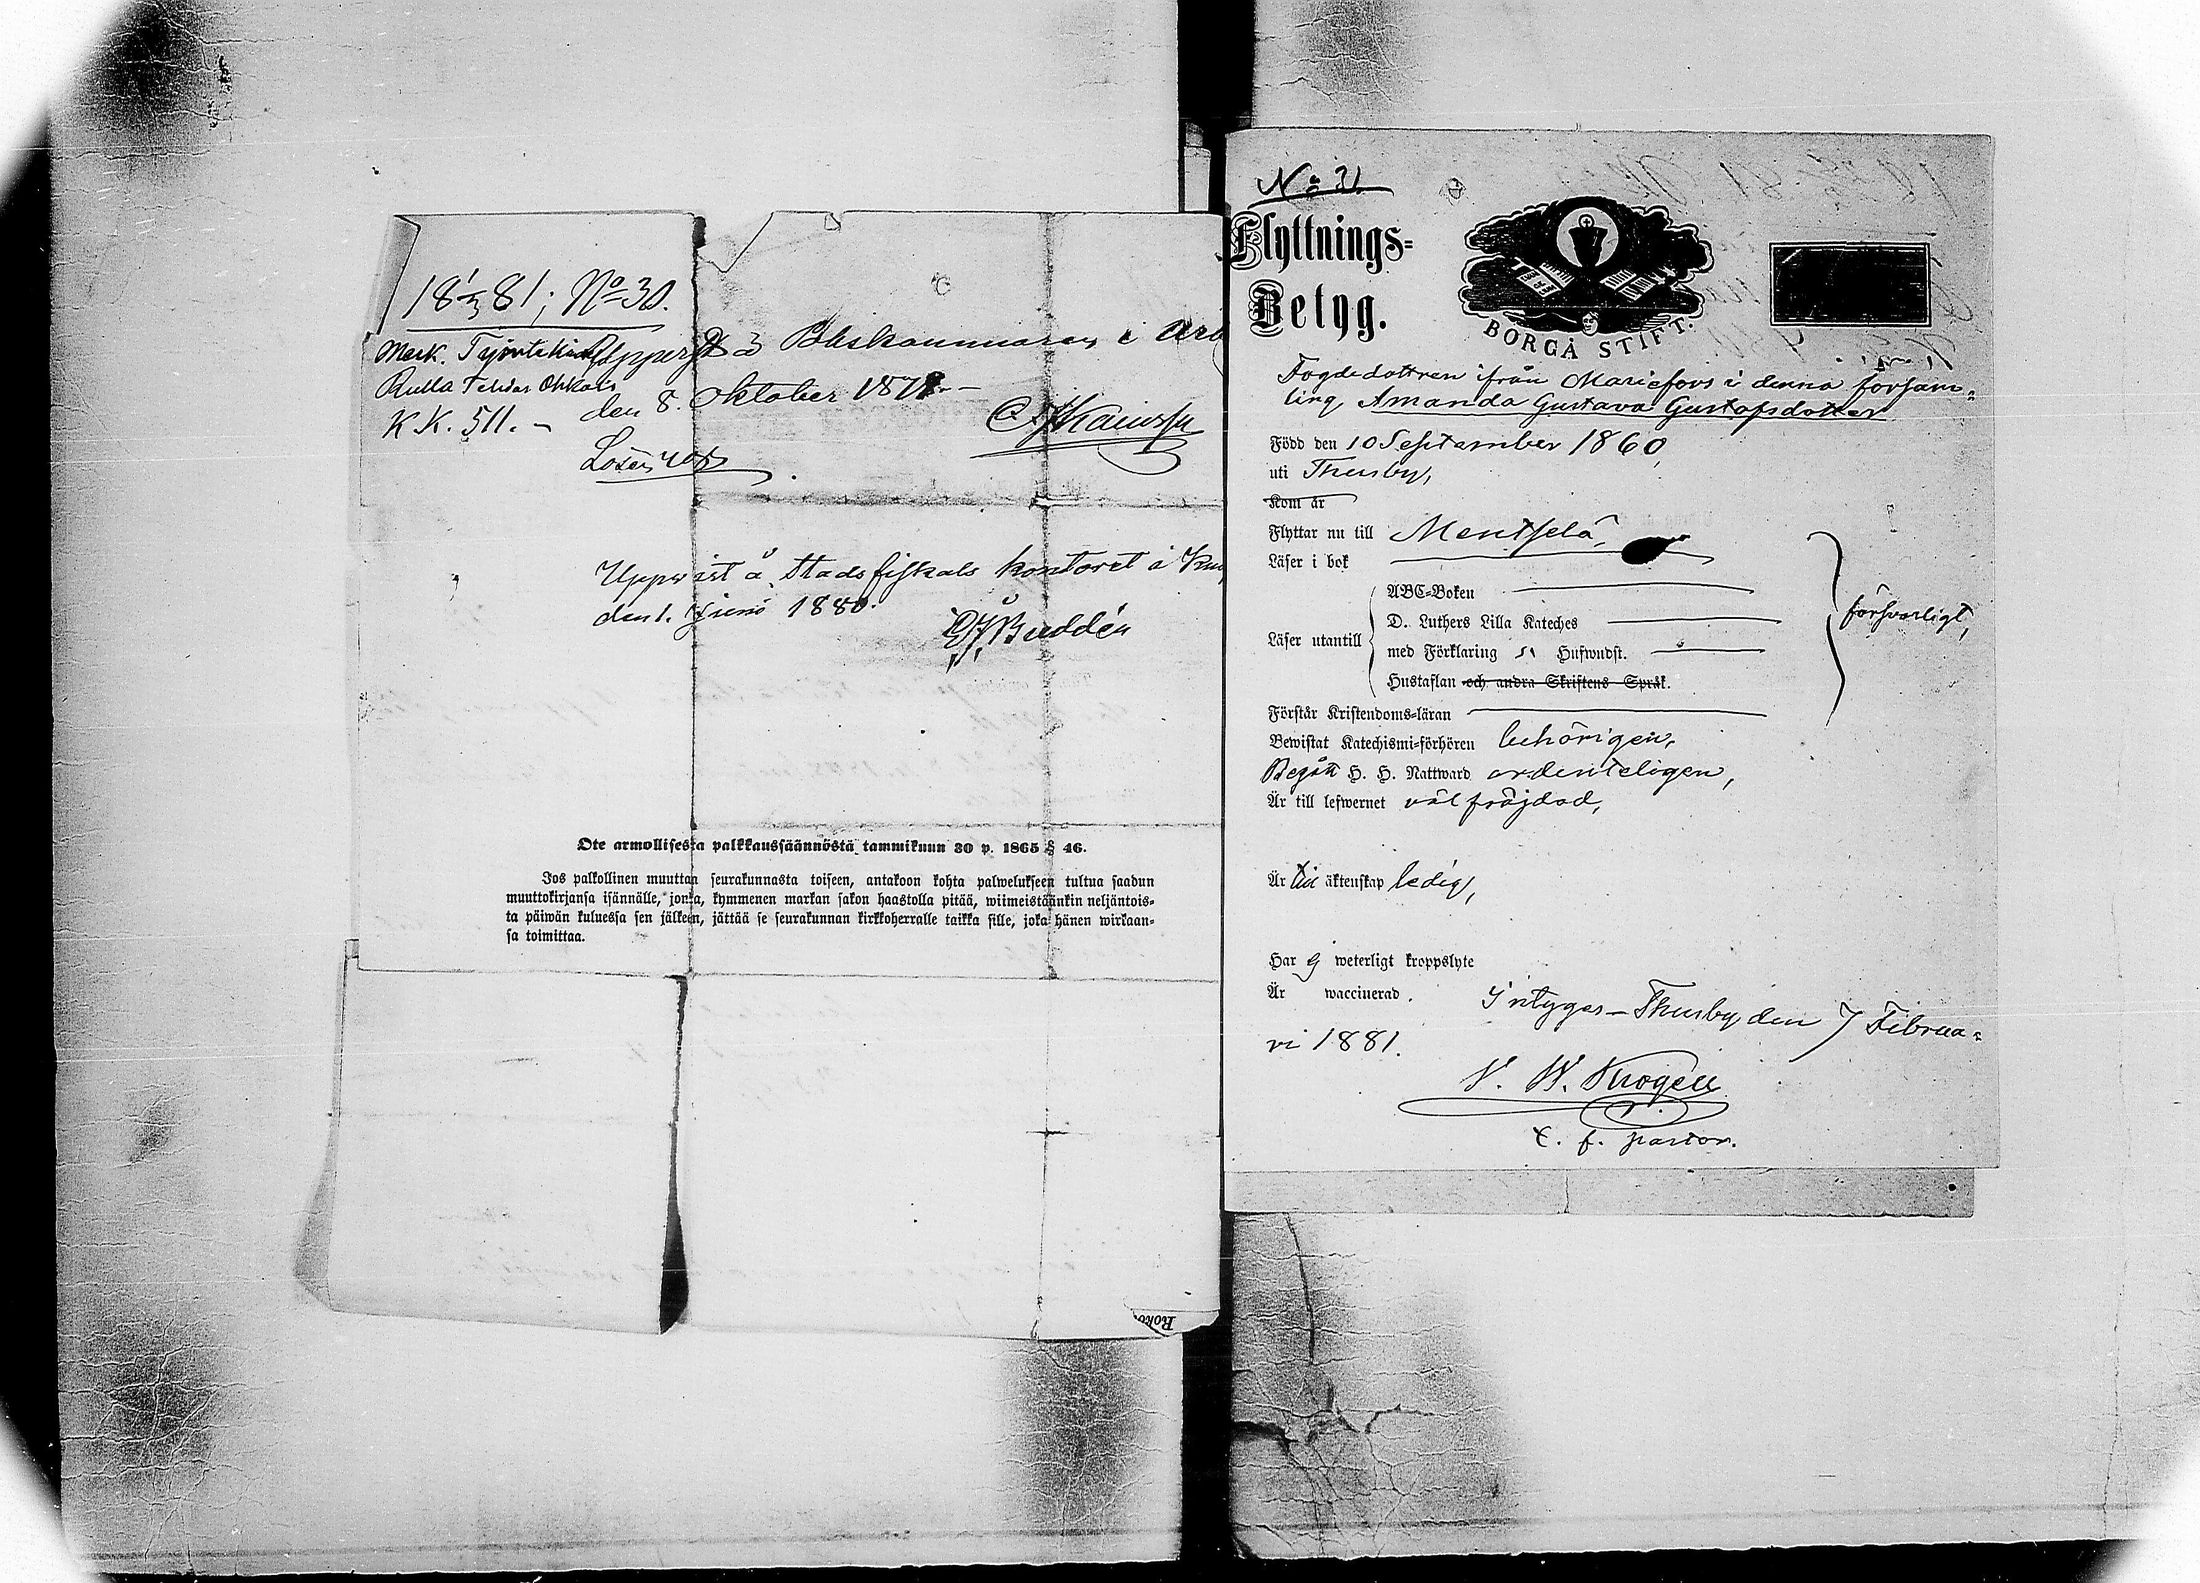 18 1/3 81; No 30.
Merk.
Rulla
K K. 511. –
den 8. Oktober
Uppvist å Stadsfiskals kontoret i
den 1. Juni 1880.
Ote armollisesta palkkaussäännöstä tammikuun 30 p. 1865 § 46.
Jos palkollinen muuttaa seurakunnasta toiseen, antakoon kohta palwelukseen tultua saadun
muuttokirjansa isännälle, jonka, kymmenen markan sakon haastolla pitää, wiimeistäänkin neljäntois-
ta päiwän kuluessa sen jälkeen, jättää se seurakunnan kirkkoherralle taikka sille, joka hänen wirkaan-
sa toimittaa.
Roko
No 31
Flyttnings-
Betyg.
BORGÅ STIFT.
Fogdedottren ifrån Mariefors i denna försam-
ling, Amanda Gustava Gustafsdotter
Född den 10 September 1860,
uti Thusby,
Kom år
Flyttar nu till Mentselä,
Läser i bok
ABC-Boken
D. Luthers Lilla Kateches
Läser utantill
med Förklaring Hufwudst.
försvarligt,
Hustaflan och andra Skriftens Språk.
Förstår Kristendoms-läran
Bewistat Katechismi-förhören behörigen,
Begått H. H. Nattward ordenteligen,
Är till lefwernet väl fräjdad,
Är till äktenskap ledig,
Har ej weterligt kroppslyte
Är waccinerad. Intygas – Thusby den 7 Februa-
ri 1881.
t. f. pastor.